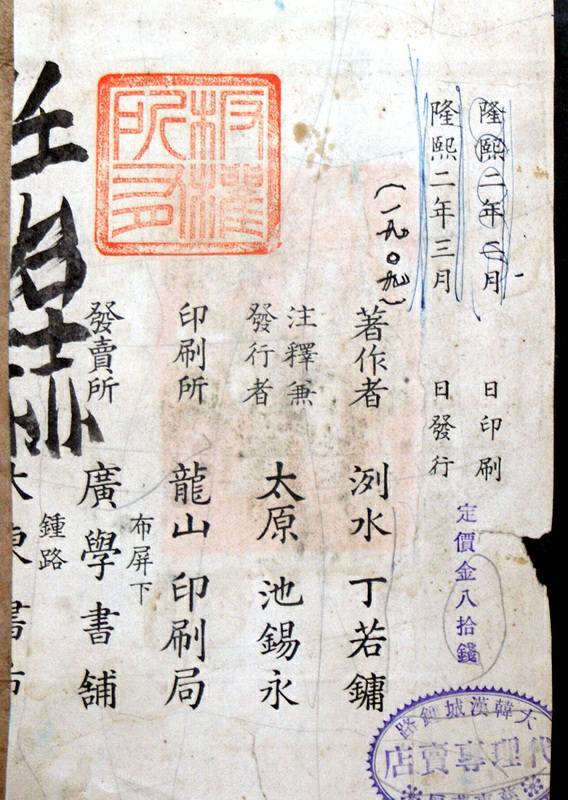 隆熙二年二月 日印刷
隆熙二年三月 日發行
定價金八拾錢
(一九〇九)
著作者 洌水 丁若鏞
注釋兼
發行者 太原 池錫永
印刷所 龍山 印刷局
布屏下
發賣所 廣學書舖
鍾路
大東書市
板權
所有
大韓漢城鍾路
代理專賣店